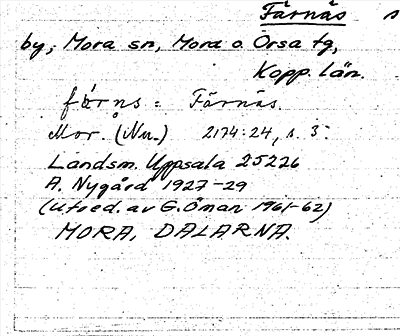 Färnäs s
by; Mora sn, Mora o Orsa tg,
Kopp. län.
färns = Färnäs.
Mor. (Nu.) 2174:24, s. 3.
Landsm. Uppsala 25226
A. Nygård 1927-29
(Utred. av G. Öman 1961-62)
MORA, DALARNA.